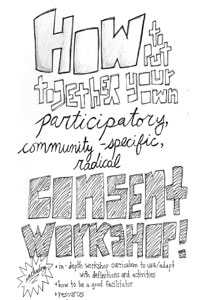 HOW to put
together your own
participatory,
community-specific,
radical
CONSENT
WORKSHOP!
• in-depth workshop curriculum to use/adapt
with definitions and activities
• how to be a good facilitator
• resources